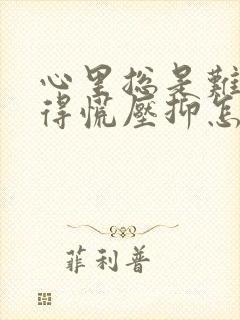 心里总是難
得慌壓抑怎
菲利普